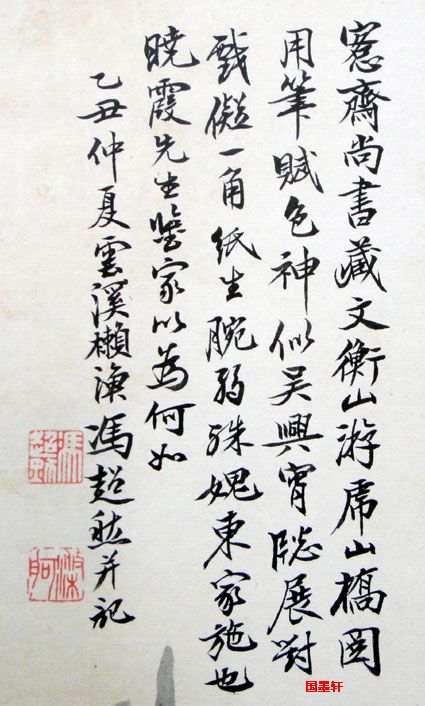 愙齋尚書藏文衡山游虎山橋圖
用筆賦色神似吴興宵牕展對
戲儗一角紙生腕弱殊媿東家施也
曉霞先生鑒家以為何如
乙丑仲夏雲溪懶漁馮超然并記
馮超然
滌舸
国墨轩